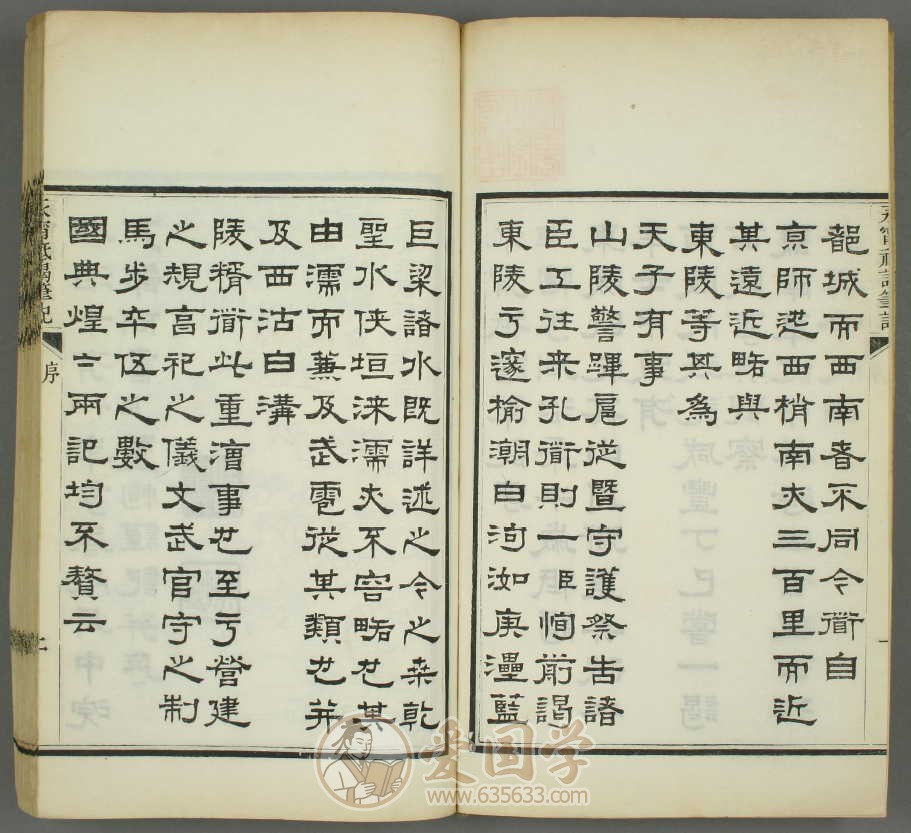 都城而西南者不同今衟自
京師迆西梢南去三百里而近
其遠近略與
東陵等其為
天子有事
山陵警蹕扈從暨守護祭告諸
臣工往来孔衟則一臣恂前謁
東陵亏邃榆潮白泃洳庚灅藍
永甯祗謁筆記
序
二
巨梁諸水既詳述之今之桑乾
聖水侠垣淶濡亦不容略也其
由濡而兼及武雹從其類也并
及西沽白溝
陵糈衟此重漕事也至亏營建
之規高祀之儀文武官守之制
馬步卒伍之數
國典煌〻兩記均不贅云
爱国学
www.635633.com